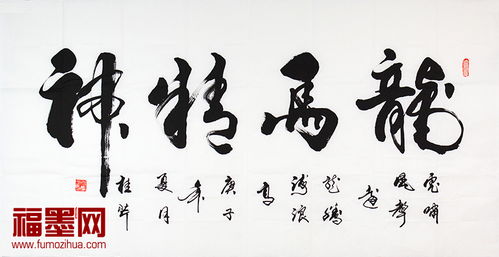 龍馬精神
虎嘯
風聲
遠
龍騰
海浪
高
庚子
年
夏月
福墨网
www.fumozihua.com